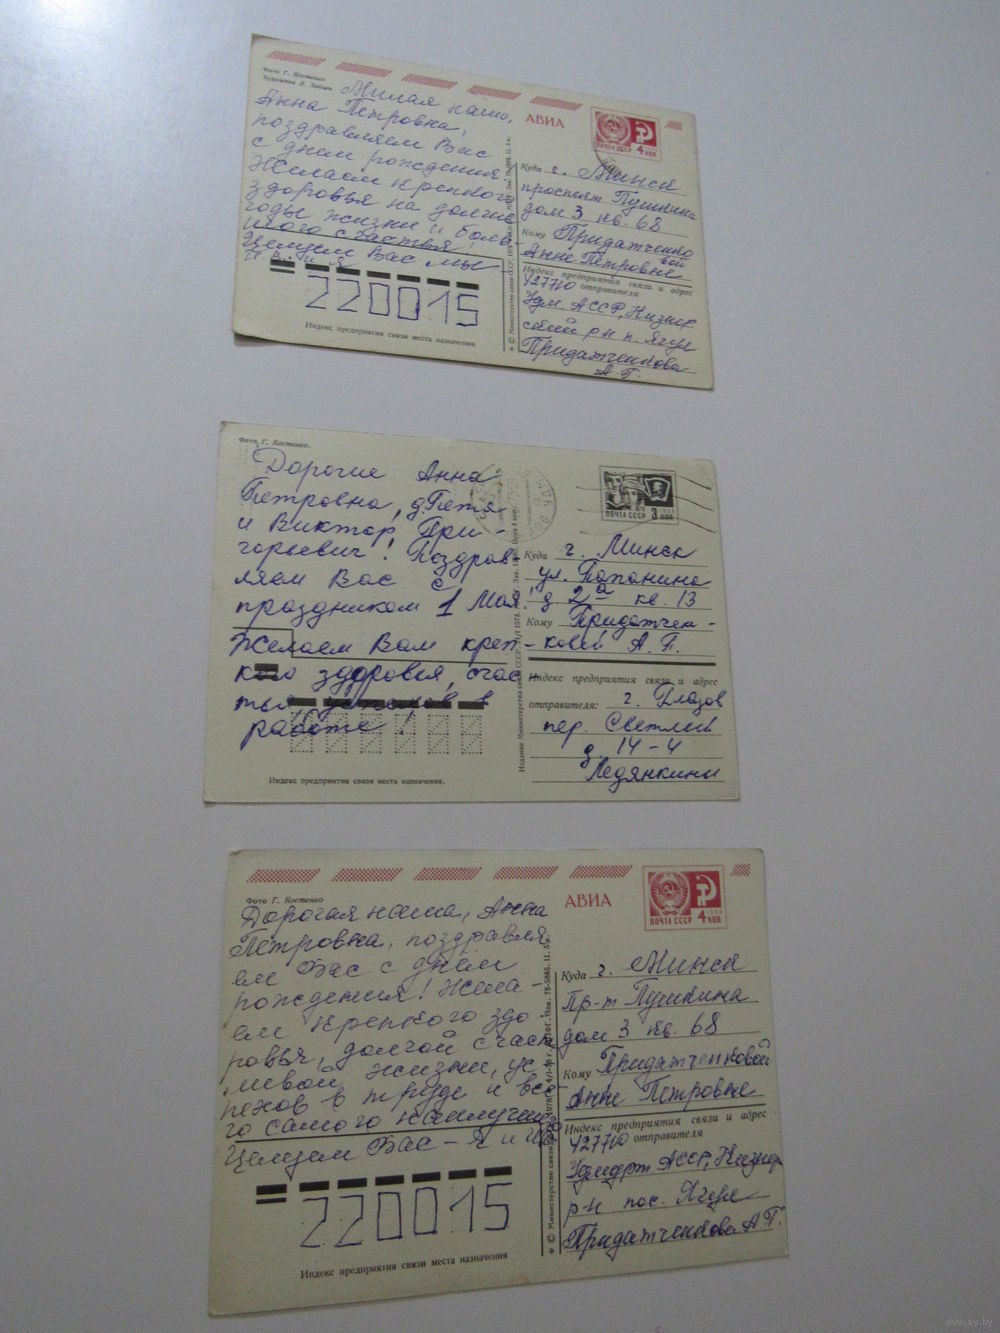 Фото Г. Костенко
Художник Л. Зайцев
АВИА
ПОЧТА СССР 4 коп.
Милая наша,
Анна Петровна,
поздравляем Вас
с днем рождения!
Желаем крепкого
здоровья на долгие
годы жизни и боль-
шого счастья!
Целуем Вас мы
220015
Индекс предприятия связи места назначения
Куда г. Минск
проспект Пушкина
дом 3 кв. 68
Кому Придатченко
вой
Анне Петровне
Индекс предприятия связи и адрес
отправителя
427710
Удм. АССР, Кизнер
ский р-н п. Ягул
Придатченкова
А. П.
Фото Г. Костенко.
ПОЧТА СССР 3 коп
Дорогие Анна
Петровна, д. Петя
и Виктор Гри-
горьевич! Поздрав
ляем Вас с
праздником 1 Мая!
Желаем Вам креп-
кого здоровья, счас
тья, успехов в
работе!
Индекс предприятия связи места назначения.
Куда г. Минск
ул. Папанина
д 2а кв. 13
Кому Придатчен-
ковой А. П.
Индекс предприятия связи и адрес
отправителя: г. Глазов
пер. Светлый
д. 14-4
Ледянкины
Фото Г. Костенко
АВИА
ПОЧТА СССР 4 коп.
Дорогая наша, Анна
Петровна, поздравля
ем Вас с днём
рождения! Жела-
ем крепкого здо-
ровья, долгой счаст
ливой жизни, ус
пехов в труде и все-
го самого наилучшего
Целуем Вас - Я и
220015
Индекс предприятия связи места назначения
Куда г. Минск
пр-т Пушкина
дом 3 кв. 68
Кому Придатченковой
Анне Петровне
Индекс предприятия связи и адрес
отправителя
427710
Удмурт АССР, Кизнер
р-н пос. Ягул
Придатченкова А. П.
www.ay.by